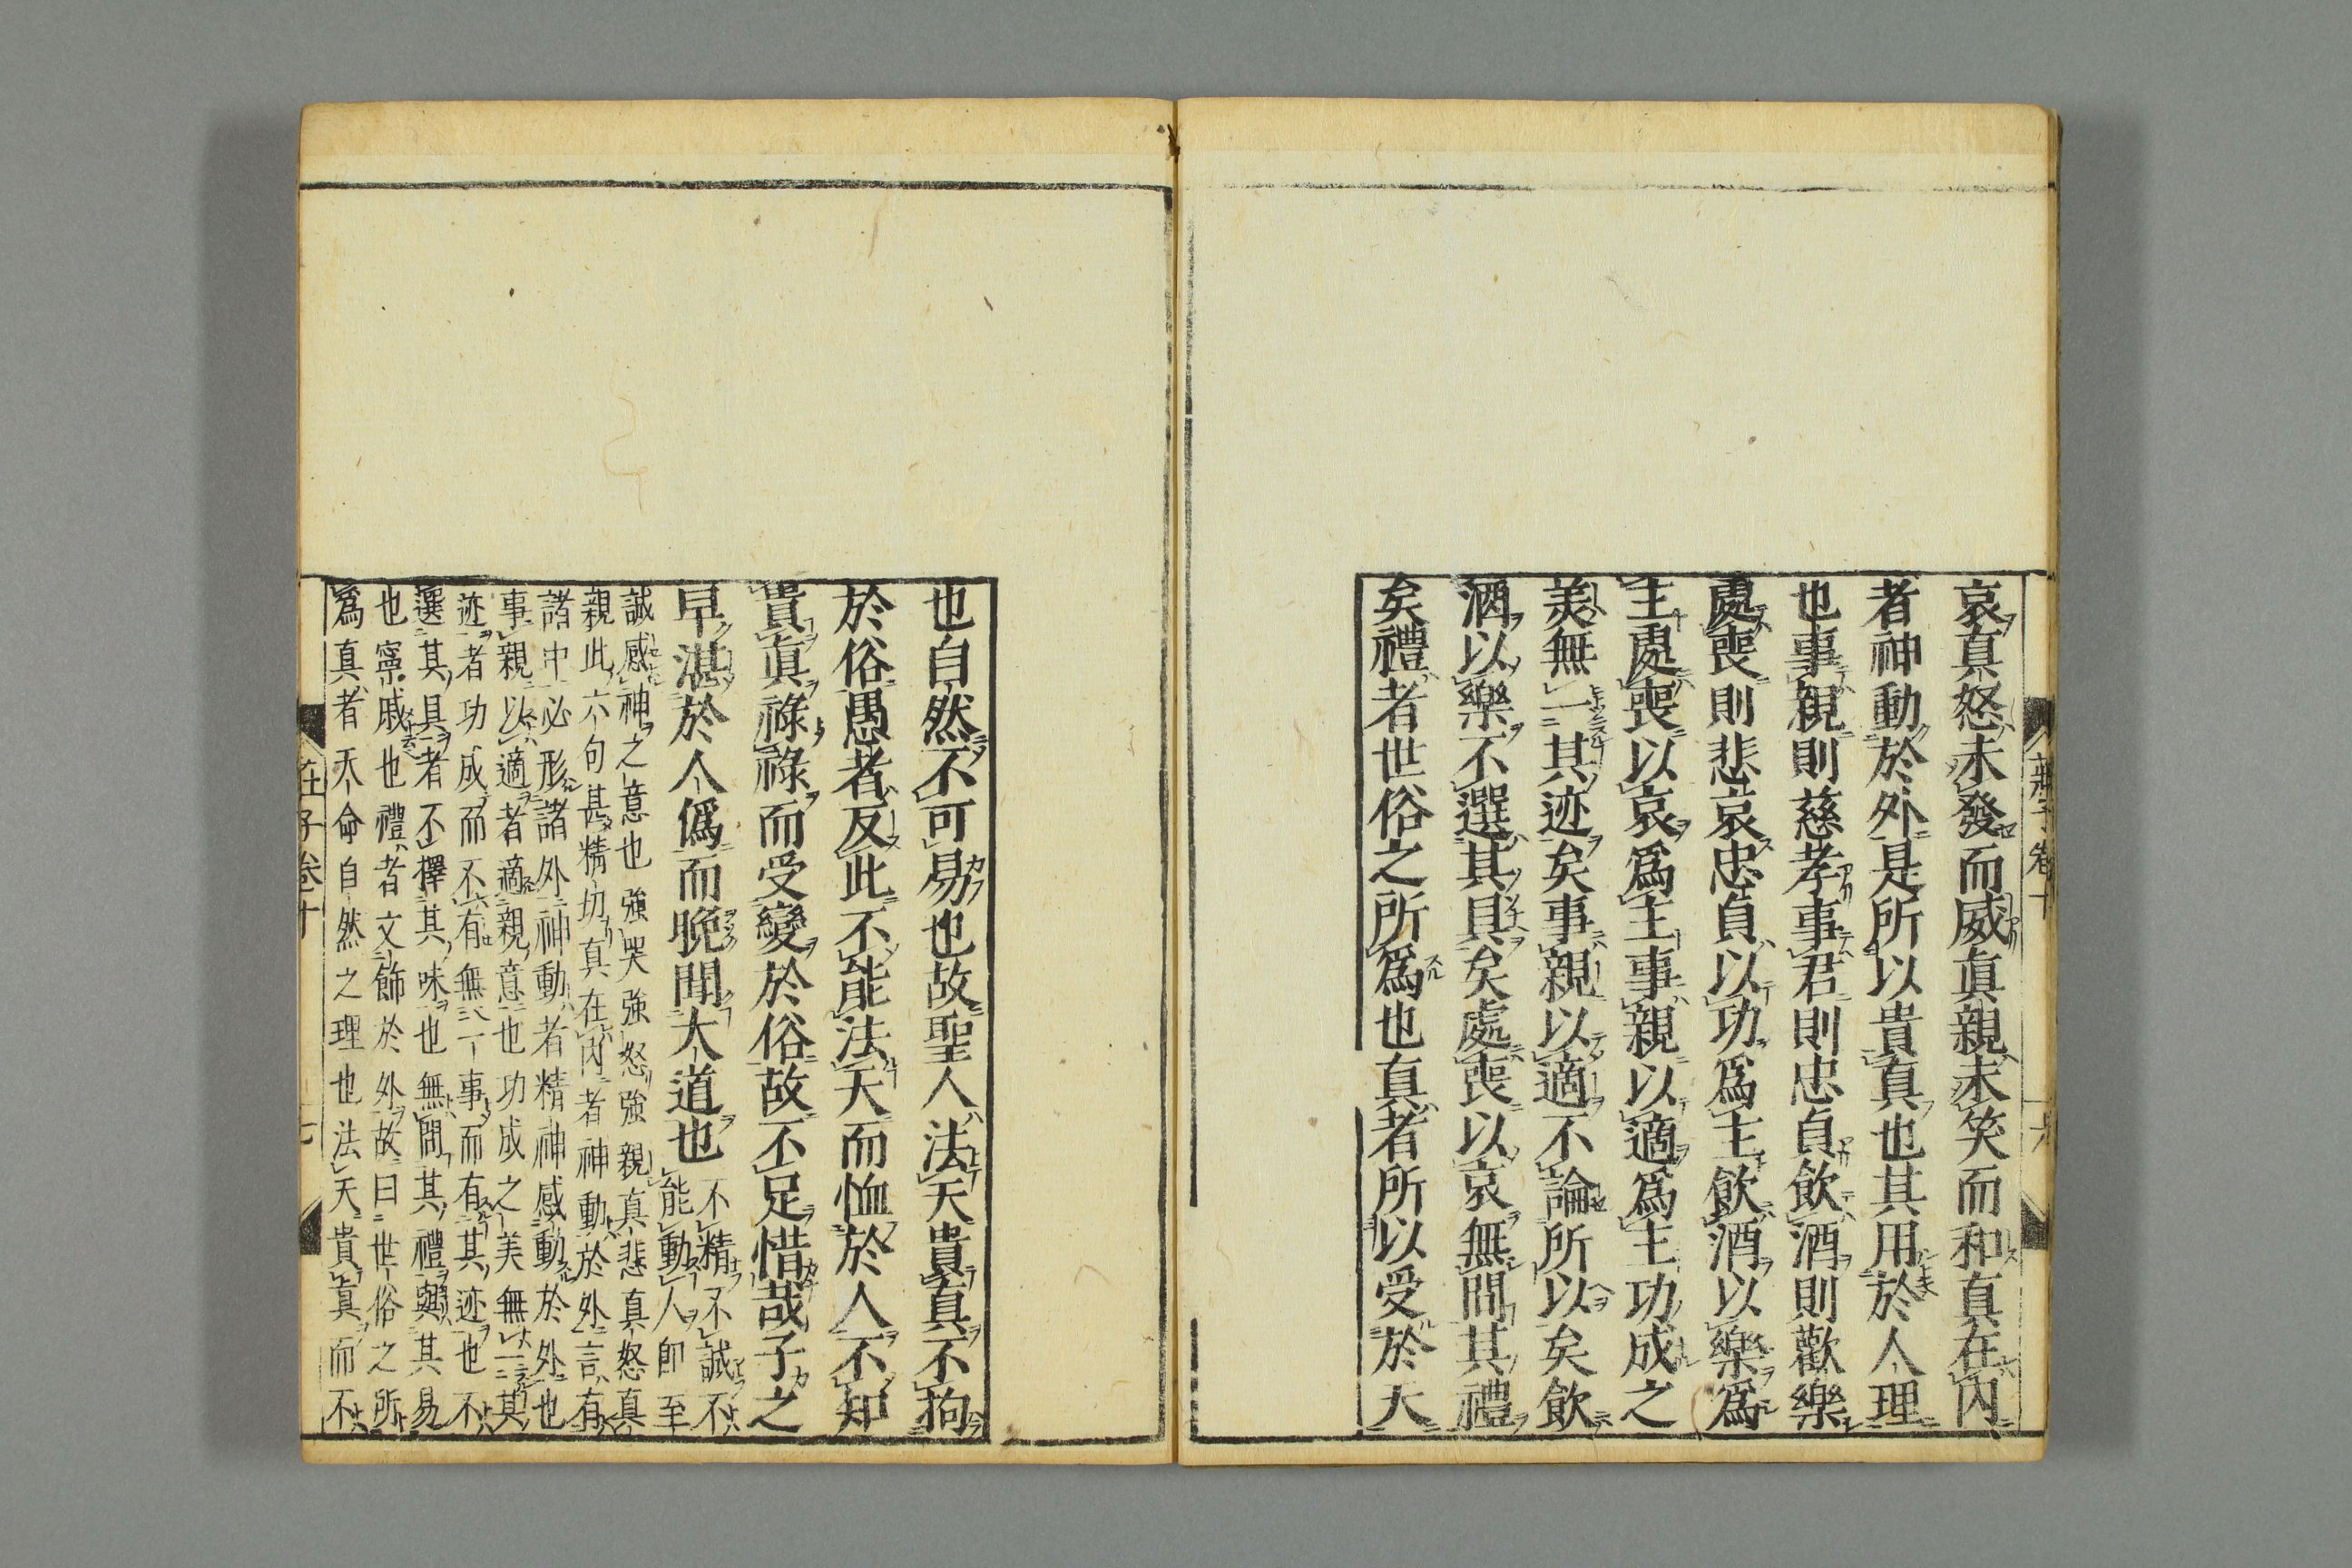 哀真怒未發而威真親未笑而和真在内
者神動於外是所以貴真也其用於人理
也事親則慈孝事君則忠貞飲酒則歡樂
處喪則悲哀忠貞以功爲主飲酒以樂爲
主處喪以哀爲主事親以適爲主功成之
美無一其迹矣事親以適不論所以矣飲
酒以樂不選其具矣處喪以哀無問其禮
矣禮者世俗之所爲也真者所以受於天
也自然不可易也故聖人法天貴真不拘
於俗愚者反此不能法天而恤於人不知
貴真祿祿而受變於俗故不足惜哉子之
早湛於人僞而晩聞大道也 不精不誠不
能動人即至
誠感神之意也強哭強怒強親真悲真怒真
親此六句甚精切真在内者神動於外言有
諸中必形諸外神動者精神感動於外也
事親以適者適親意也功成之美無一其
迹者功成而不有無一事而有其迹也不
選其具者不擇其味也無問其禮與其易
也寧戚也禮者文飾於外故曰世俗之所
爲真者天命自然之理也法天貴真而不
莊子卷十
莊子卷十